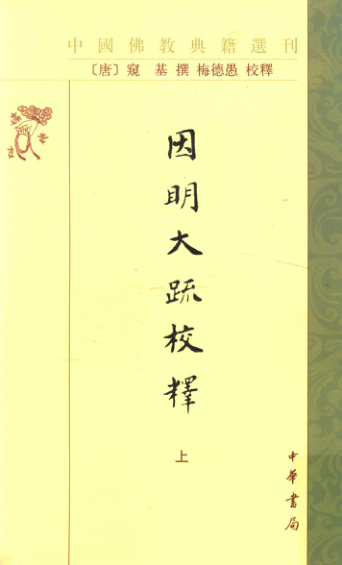 中國佛教典籍選刊
〔唐〕窺 基 撰 梅德愚 校釋
因明大疏校釋
上
中華書局